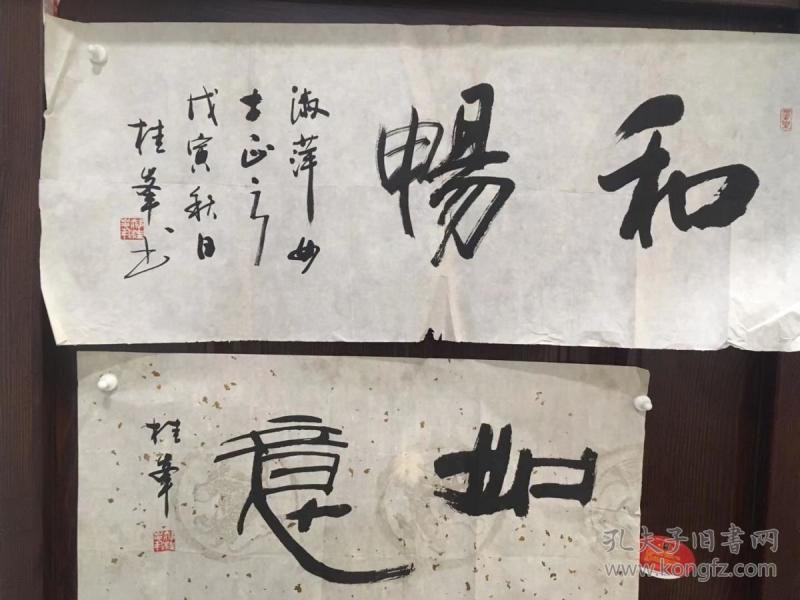 和暢
淑萍女
士正之
戊寅秋日
桂峯书
如意
桂峯
孔夫子旧书网
www.kongfz.com